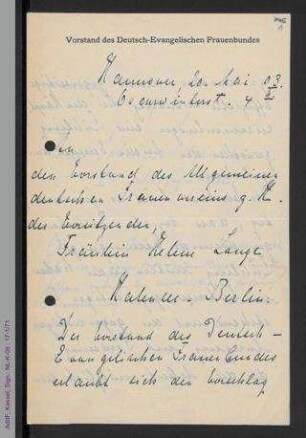 Vorstand des Deutsch-Evangelischen Frauenbundes
Hannover, 20. Mai 03.
An
den Vorstand des Allgemeinen
deutschen Frauenvereins z. H.
der Vorsitzenden,
Fräulein Helene Lange
Halensee-Berlin.
Der Vorstand des Deutsch-
Evangelischen Frauenbundes
erlaubt sich den Vorschlag
AddF, Kassel, Sign.: NL-K-08 ; 17-1/71